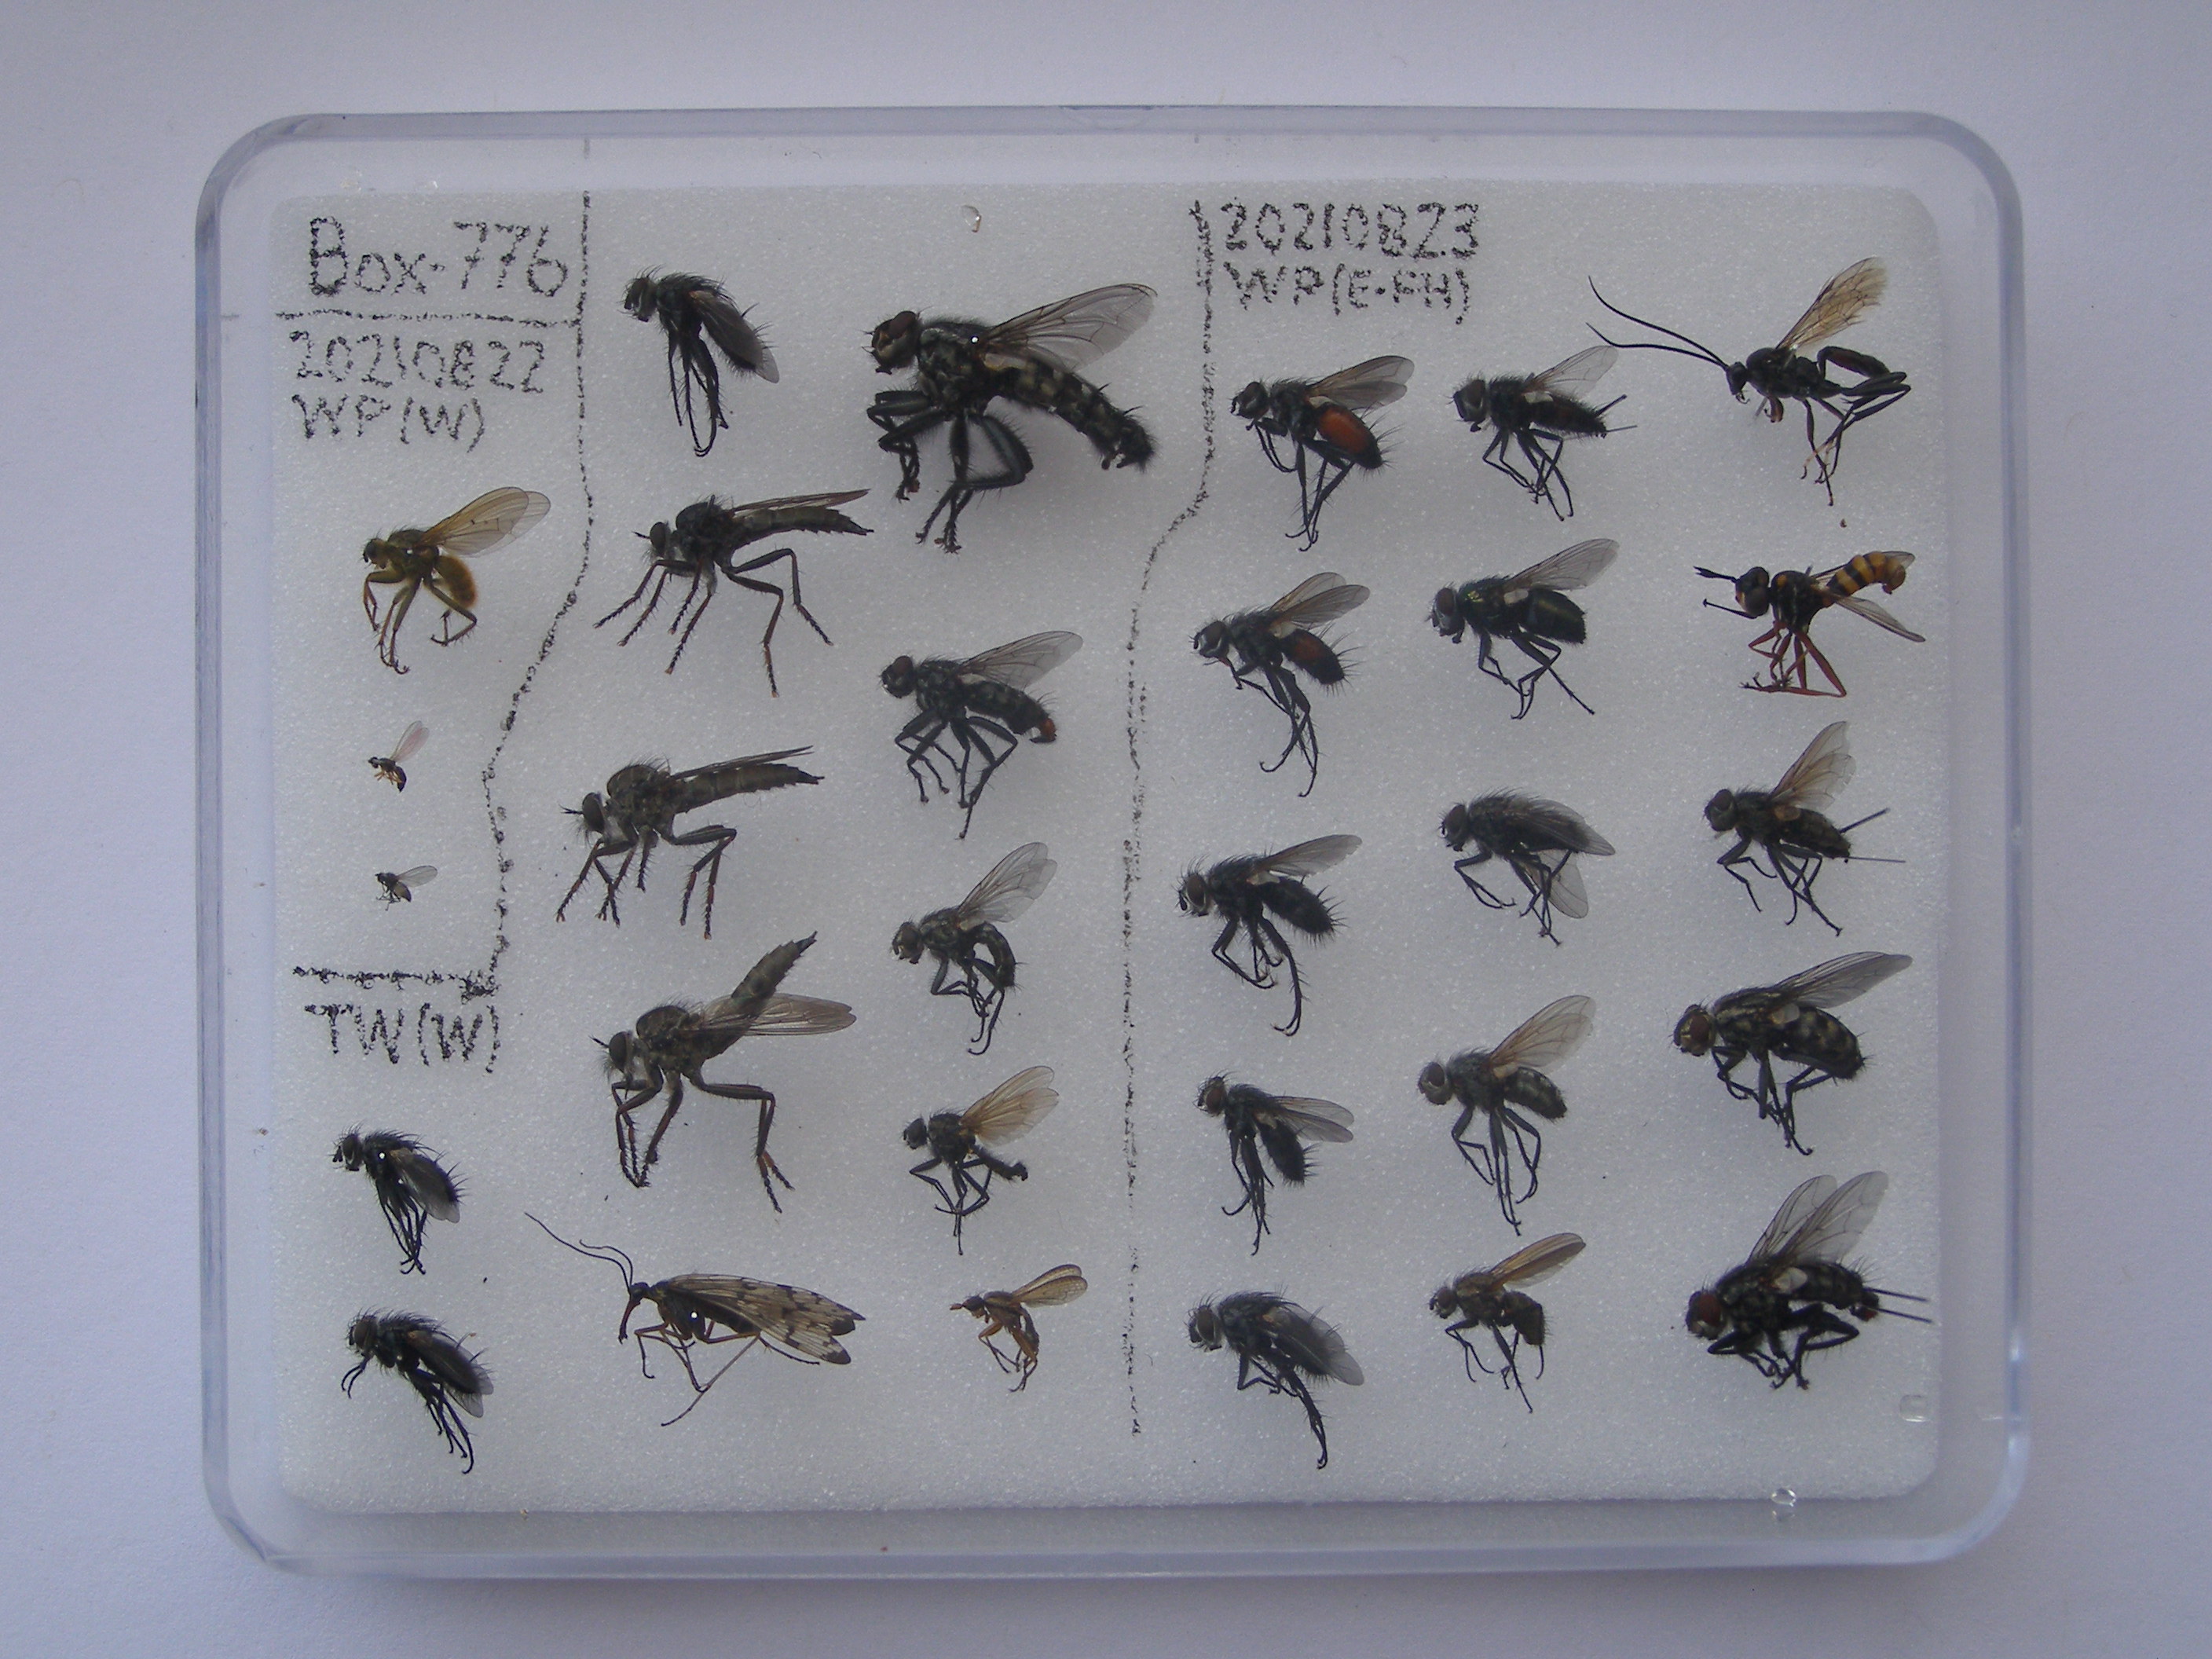 Box-776
20210822
WP(W)
TW(W)
20210823
WP(E-FH)